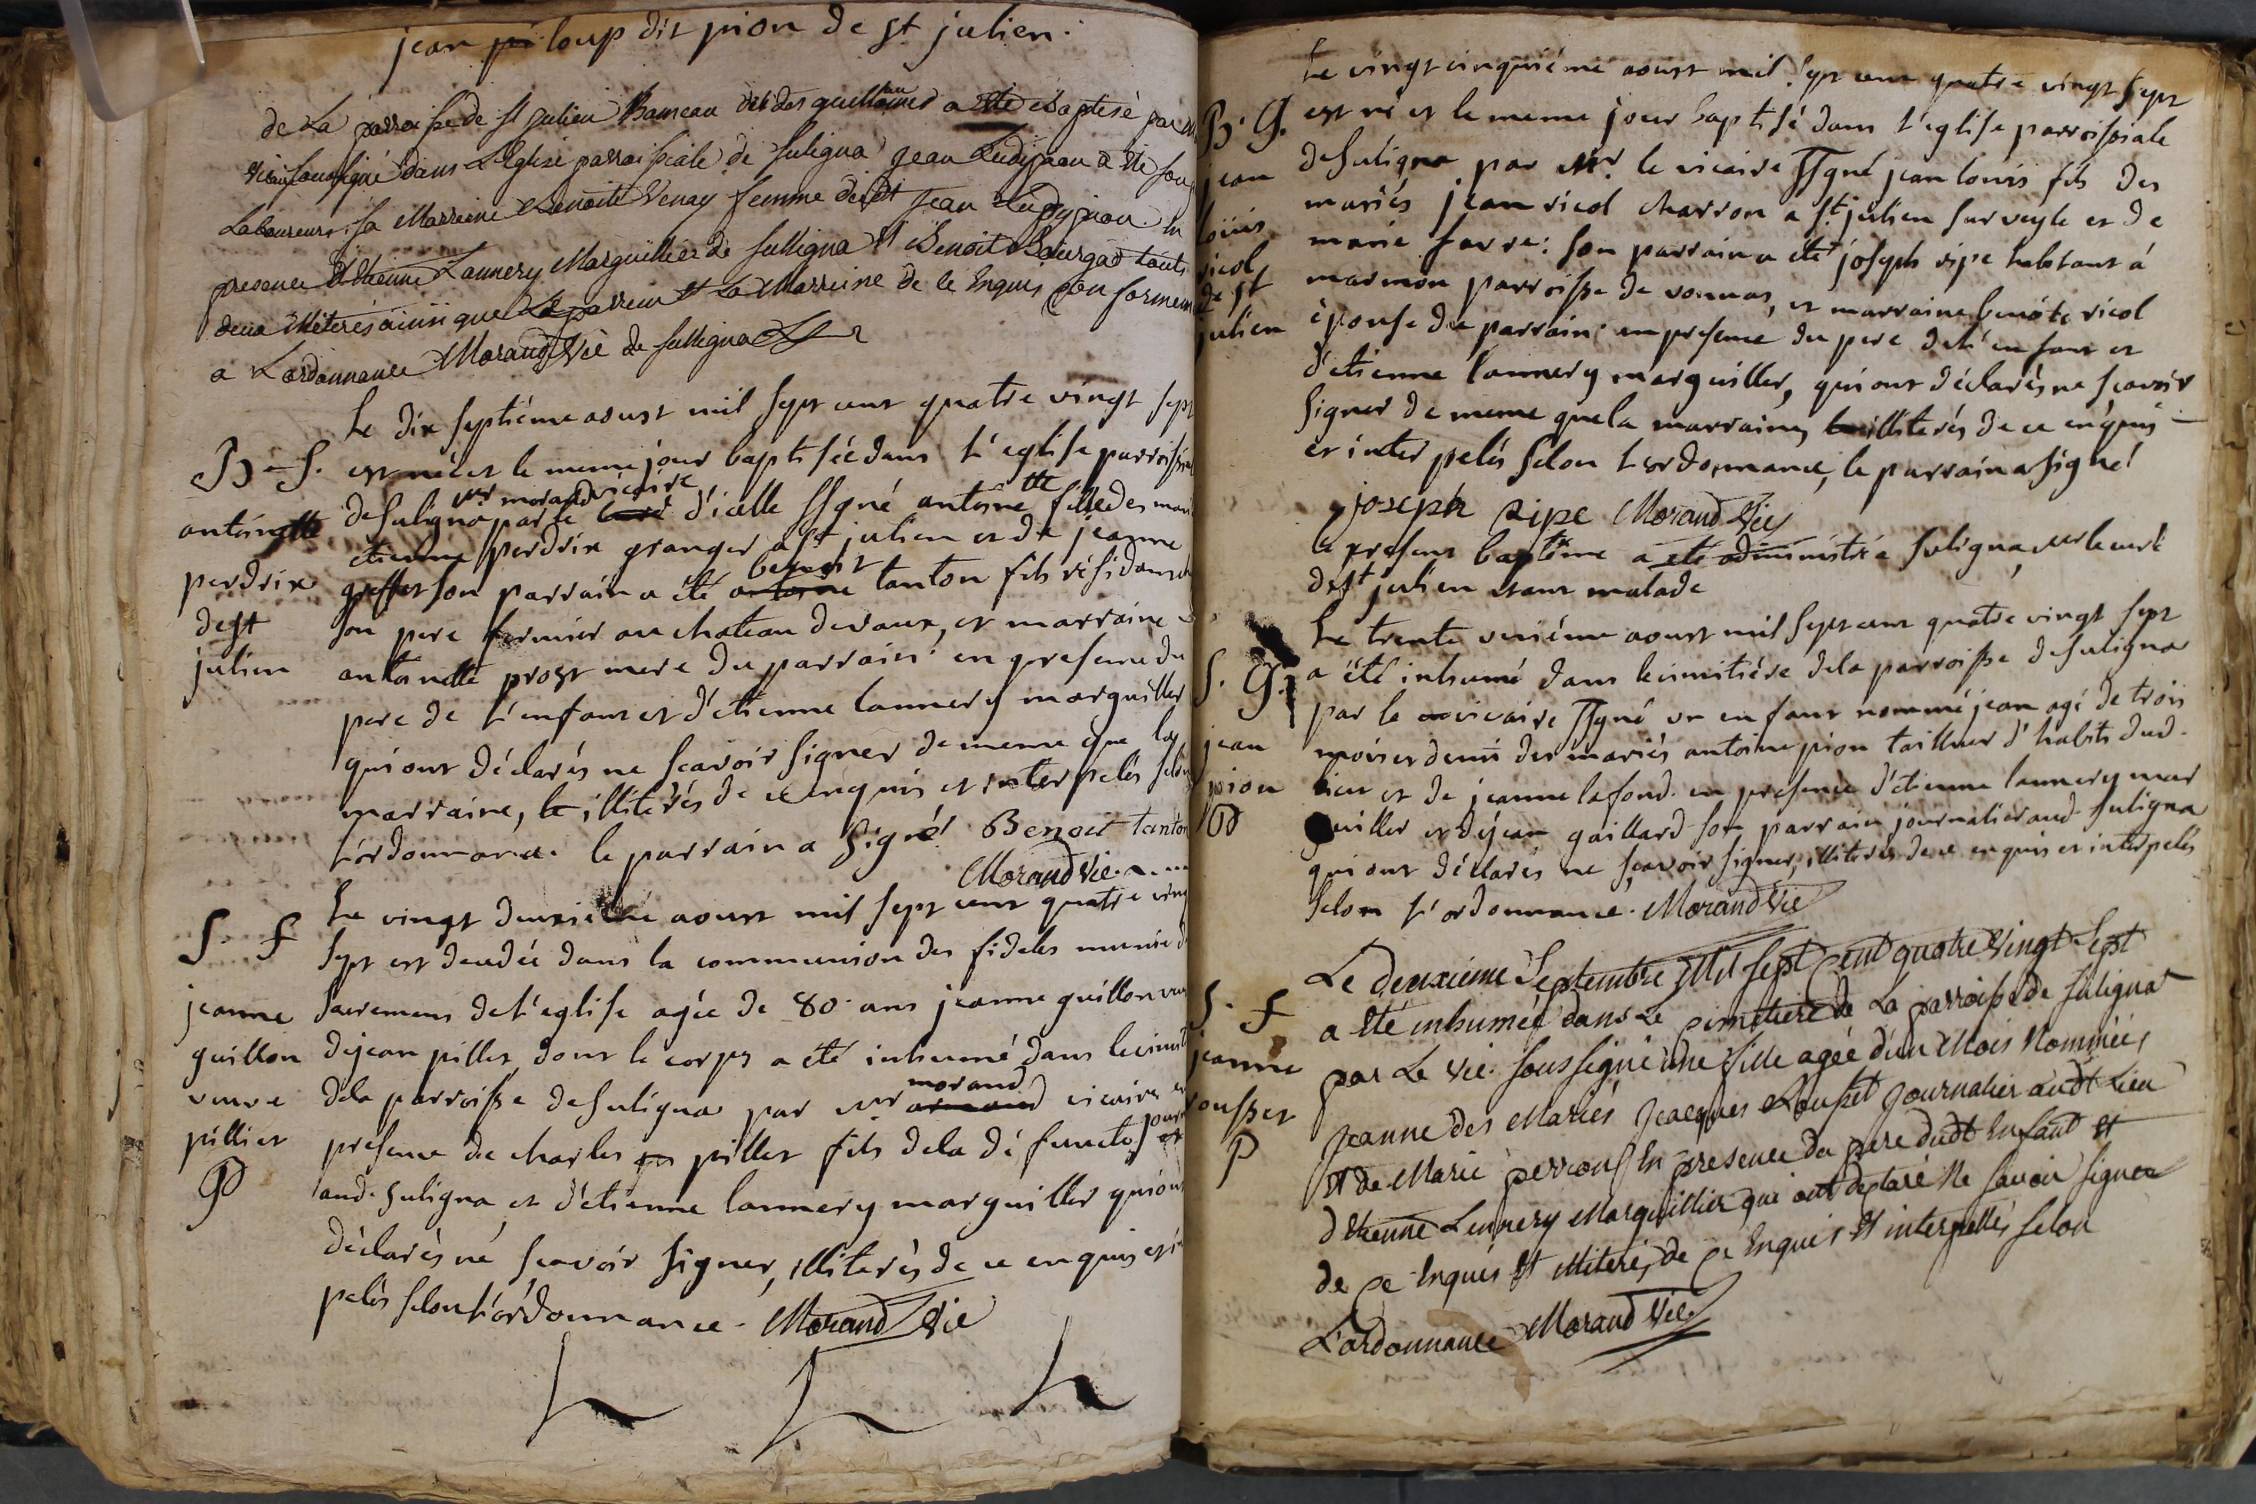 jean loup dit pion de st julien.
de La parroisse de st Julien hameau des guillaumes a été Baptisé par
vic. soussigné dans L'Eglise parroissiale de Suligna Jean a été son
Laboureur. Sa Marreine Benoite Venay femme dudt Jean En
presence d'Etienne Lannery Marguillier de sulligna Et Benoit touts
deux illiterés ainsi que Le parrein et La Marreine de ce Enquis Conformement
a L'ordonnance Morand Vic de sulligna
Le dix septiéme aoust mil sept cent quatre vingt sept
B. f. est née et le meme jour baptisée dans l'eglise parroissiale
mr morand vicaire
de suligna par le curé d'icelle ssgné antoinette fille des mariés
antoinette
etienne perdrix granger a st julien et de jeanne
benoit
perdrix
son parrain a été antoine tanton fils résidant
de st
son pere fermier au chateau devaux, et marraine
julien
antoinette prost mere du parrain: en presence du
pere de l'enfant et d'etienne lannery marguiller
qui ont déclarés ne scavoir signer de meme que la
marraine, illiterés de ce enquis et interpelés selon
l'ordonnance. le parrain a signé. Benoit tanton
Morand Vic.
Le vingt deuxiéme aoust mil sept cent quatre vingt
S. f sept est decedée dans la communion des fideles munie des
jeanne sacremens de l'eglise agée de 80 ans jeanne guillon veuve
guillon de jean pillet, dont le corps a été inhumé dans le cimitiere
morand
veuve dela parroisse de suligna par mr armand vicaire en
pillet presence de charles pillet fils dela défuncte, journalier
P aud. suligna et d'etienne lannery marguiller qui ont
déclarés né scavoir signer, illiterés de ce enquis et inter
pelés selon l'ordonnance. Morand Vic
Le vingt cinquiéme aoust mil sept cent quatre vingt sept
B. G. est né et le meme jour baptisé dans l'eglise parroissiale
jean de suligna par mr. le vicaire ssgné jean louis fils des
louis mariés jean ricol charron a st. julien sur veyle et de
ricol marie favre: son parrain a été joseph ripe habitant á
de st marmon parroisse de vonnas, et marraine benoite ricol
julien épouse du parrain: en presence du pere de l'enfant et
d'etienne lannery marguiller, qui ont déclarés ne scavoir
signer de meme que la marraine, illiterés de ce enquis
et interpelés selon l'ordonnance, le parrain a signé.
joseph ripe Morand Vic
le present baptême a été administré a suligna, mr le curé
de st julien etant malade
Le trente uniéme aoust mil sept cent quatre vingt sept
S. G. a été inhumé dans le cimitiére dela parroisse de suligna
par le vicaire ssgné un enfant nommé jean agé de trois
jean mois et demi des mariés antoine pion tailleur d'habits dud.
pion lieu et de jeanne lafond. en presence d'etienne lannery mar
P guiller et de jean gaillard son parrain journalier aud suligna
qui ont déclarés ne scavoir signer, illiterés de ce enquis et interpelés
selon l'ordonnance. Morand Vic
Le deuxieme Septembre Mil sept Cent quatre Vingt Sept
S. f a été inhumée dans Le Cimetiere de La parroisse de suligna
jeanne par Le Vic. soussigné Une fille agée d'un Mois Nommée,
rousset Jeanne des Mariés Jacques Rousset Journalier audt Lieu
P Et de Marie perroux En presence du pere dudt Enfant Et
d'Etienne Lennery Marguillier qui ont declaré Ne savoir signer
de Ce Enquis Et illiterés, de Ce Enquis Et interpellés selon
L'ordonnance Morand Vic.